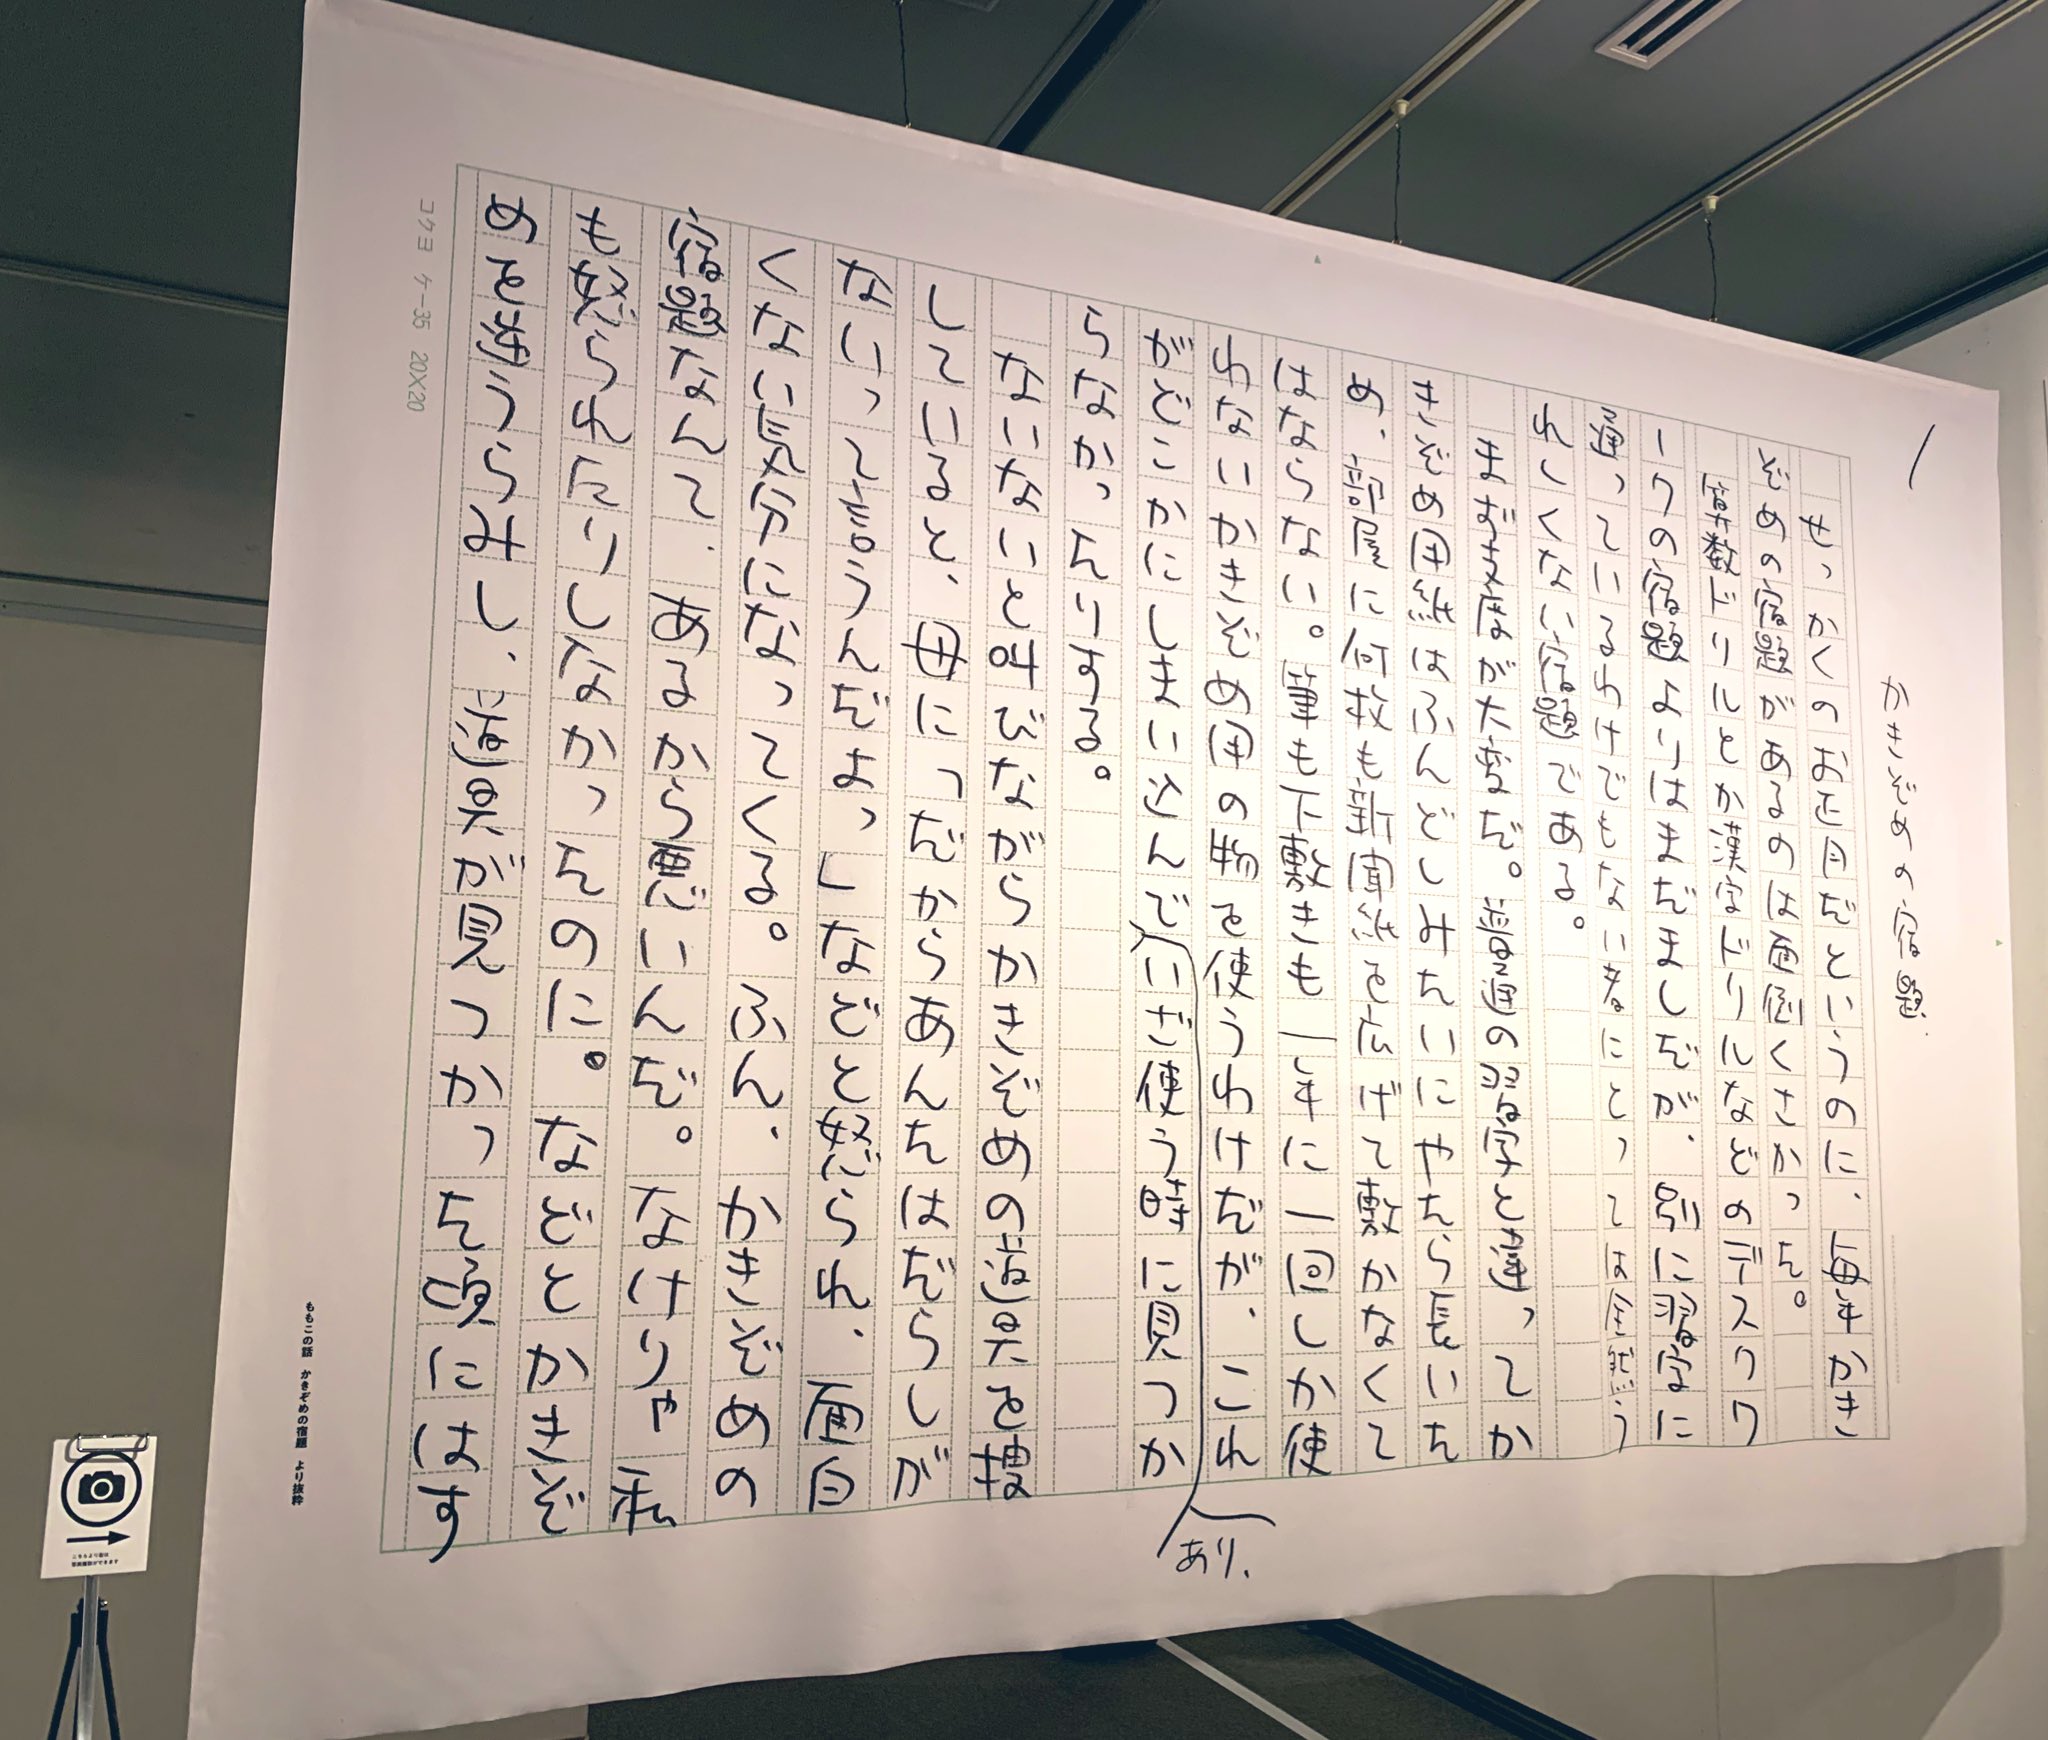 1
かきぞめの宿題
せっかくのお正月だというのに、毎年かき
ぞめの宿題があるのは面倒くさかった。
算数ドリルとか漢字ドリルなどのデスクワ
ークの宿題よりはまだましだが、別に習字に
通っているわけでもない者にとっては全然う
れしくない宿題である。
まず支度が大変だ。普通の習字と違ってか
きぞめ用紙はふんどしみたいにやたら長いた
め、部屋に何枚も新聞紙を広げて敷かなくて
はならない。筆も下敷きも一年に一回しか使
わないかきぞめ用の物を使うわけだが、これ
がどこかにしまい込んでいざ使う時に見つか
らなかったりする。
あり、
ないないと叫びながらかきぞめの道具を捜
していると、母に「だからあんたはだらしが
ないって言うんだよっ」などと怒られ、面白
くない気分になってくる。ふん、かきぞめの
宿題なんて、あるから悪いんだ。なけりゃ私
も怒られたりしなかったのに。などとかきぞ
めを逆うらみし、道具が見つかった頃にはす
コクヨ ケー35 20×20
ももこの話 かきぞめの宿題 より抜粋
こちらより前は
写真撮影ができます